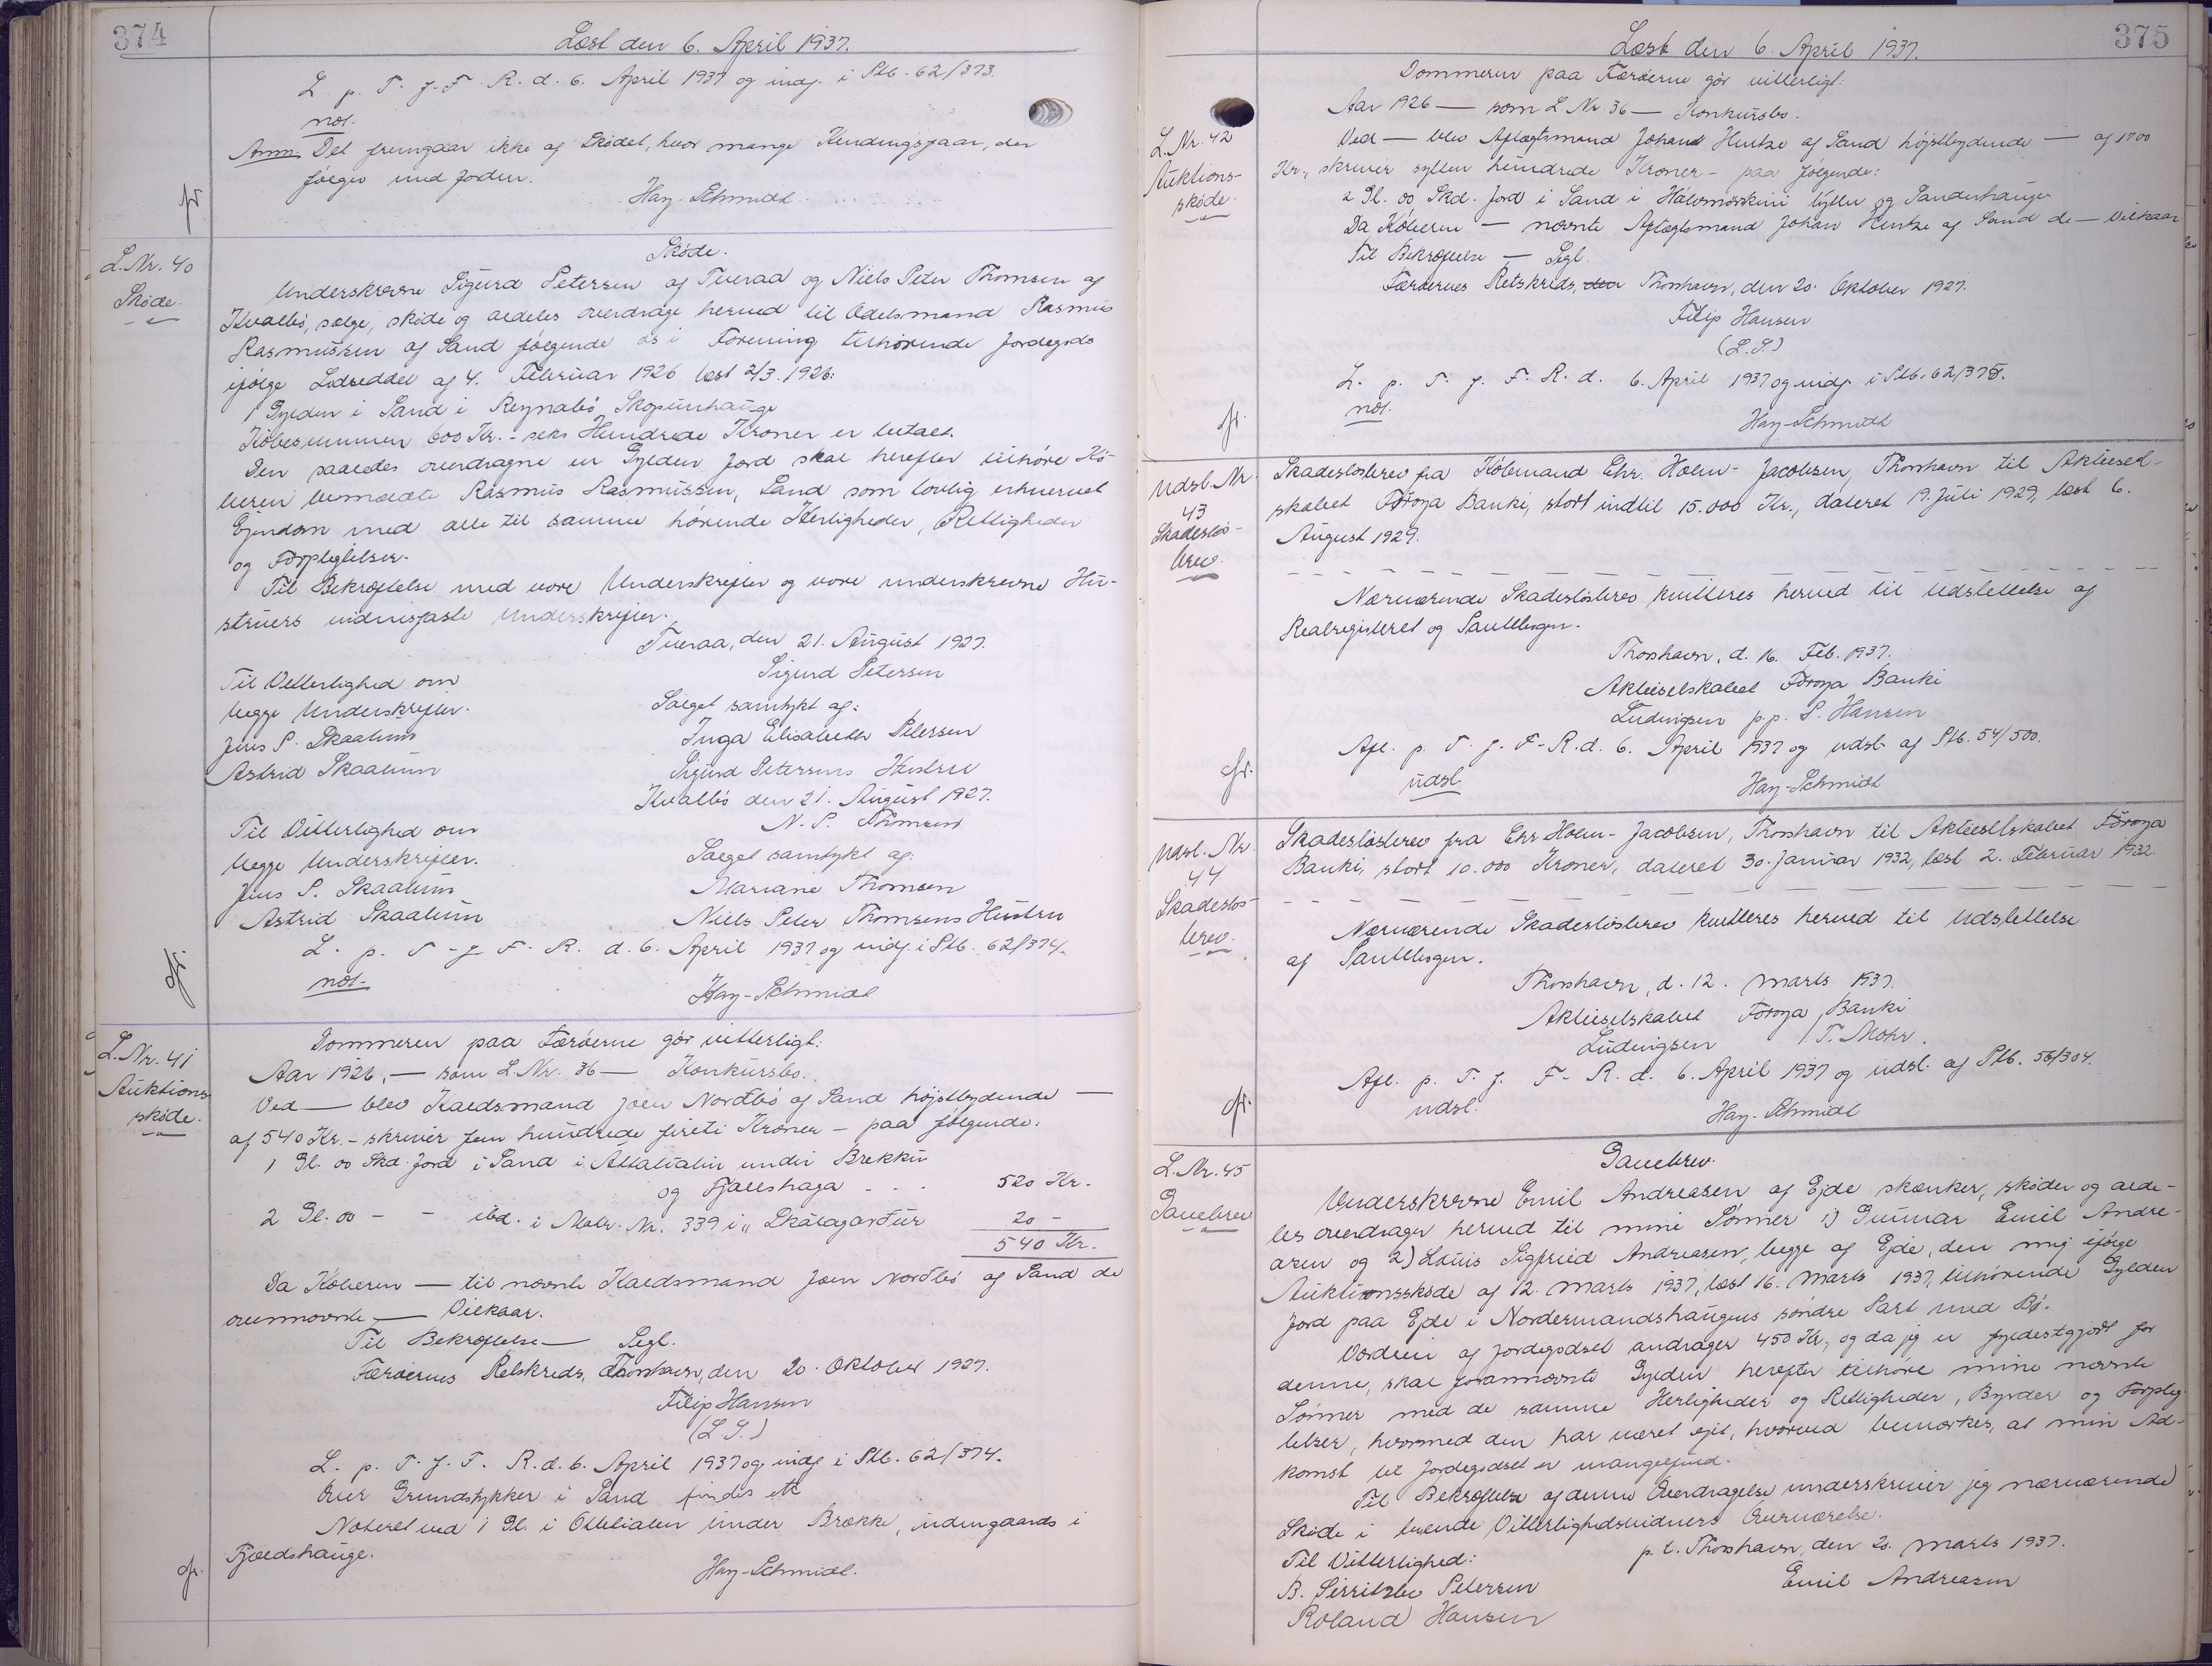 374
Læst den 6. April 1937.
L. p. T. f. F. R. d. 6. April 1937 og indf. i Ptb. 62/373.
not.
Anm. Det fremgaar ikke af Skødet, hvor mange Kendingsfaar, der
følger med Jorden.
Hay-Schmidt.
L. Nr. 40
Skøde.
Skøde.
Underskrevne Sigurd Petersen af Tveraa og Niels Peter Thomsen af
Kvalbö, sælge, skøde og aldeles overdrage herved til Odelsmand Rasmus
Rasmussen af Sand følgende os i Forening tilhørende Jordegods
ifølge Lodseddel af 4. Februar 1926 læst 2/3. 1926:
1 Gylden i Sand i Reynabö, Skopunhauge
Købesummen 600 Kr. - seks Hundrede Kroner er betalt.
Den saaledes overdragne en Gylden Jord skal herefter tilhøre Kø-
beren bemældte Rasmus Rasmussen, Sand som lovlig erhvervet
Ejendom med alle til samme hørende Herligheder, Rettigheder
og Forpligtelser.
Til Bekræftelse med vore Underskrifter og vore underskrevne Hu-
struers vidnesfaste Underskrifter.
Tveraa, den 21. August 1927.
Til Vitterlighed om
Sigurd Petersen
begge Underskrifter.
Salget samtykt af:
Jens P. Skaalum
Inga Elisabeth Petersen
Astrid Skaalum
Sigurd Petersens Hustru
Kvalbö den 21. August 1927.
Til Vitterlighed om
N. P. Thomsen
begge Underskrifter.
Salget samtykt af:
Jens P. Skaalum
Mariane Thomsen
Astrid Skaalum
Niels Peter Thomsens Hustru
L. p. T. f. F. R. d. 6. April 1937 og indf. i Ptb. 62/374.
not.
Hay-Schmidt
L. Nr. 41
Auktions-
skøde.
Dommeren paa Færøerne gör vitterligt:
Aar 1926, — som L. Nr. 36 — Konkursbo.
Ved — blev Kaldsmand Joen Norðbö af Sand højstbydende —
af 540 Kr. - skriver fem hundrede fireti Kroner - paa følgende:
1 Gl. 00 Skd. Jord i Sand i Áttalialin undir Brekku
og Fjallshaga - - - 520 Kr.
2 Gl. 00 - - ibd. i Matr. Nr. 339 i „ Skálagarður 20 -
540 Kr.
Da Köberen — til nævnte Kaldsmand Joen Norðbö af Sand de
ovennævnte — Vilkaar.
Til Bekræftelse — Segl.
Færøernes Retskreds, Thorshavn, den 20. Oktober 1927.
Filip Hansen
(L. S.)
L. p. T. f. F. R. d. 6. April 1937 og indf. i Ptb. 62/374.
Over Grundstykker i Sand findes ett
Noteret ved 1 Gl. i Ottetialen under Brække, udengaards i
Fjældshauge.
Hay-Schmidt.
375
Læst den 6. April 1937.
L. Nr. 42
Auktions-
skøde.
Dommeren paa Færøerne gör vitterligt:
Aar 1926 — som L Nr 36 — Konkursbo.
Ved — blev Aftægtsmand Johan Hentze af Sand højstbydende — af 1700
Kr., skriver sytten hundrede Kroner - paa følgende:
2 Gl. 00 Skd. Jord i Sand i Hálvmørkini lýtlu og Sandenhauge
Da Köberen — nævnte Aftægtsmand Johan Hentze af Sand de — Vilkaar
Til Bekræftelse — Segl.
Færøernes Retskreds, den Thorshavn, den 20. Oktober 1927.
Filip Hansen
(L. S.)
L. p. T. f. F. R. d. 6. April 1937 og indf. i Ptb. 62/375.
not.
Hay-Schmidt
Udsl. Nr.
43
Skadesløs-
brev.
Skadesløsbrev fra Købmand Chr. Holm-Jacobsen, Thorshavn til Aktiesel-
skabet Föroya Banki, stort indtil 15.000 Kr., dateret 19. Juli 1929, læst 6.
August 1929.
Nærværende Skadesløsbrev kvitteres herved til Udslettelse af
Realregisteret og Pantebogen.
Thorshavn, d. 16. Feb. 1937.
Aktieselskabet Föroya Banki
Ludvigsen p.p. S. Hansen
Afl. p. T. f. F. R. d. 6. April 1937 og udsl. af Ptb. 54/500.
udsl.
Hay-Schmidt
Udsl. Nr.
44
Skadesløs-
brev.
Skadesløsbrev fra Chr Holm-Jacobsen, Thorshavn til Aktieselskabet Föroya
Banki, stort 10.000 Kroner, dateret 30. Januar 1932, læst 2. Februar 1932.
Nærværende Skadesløsbrev kvitteres herved til Udslettelse
af Pantebogen.
Thorshavn, d. 12. Marts 1937.
Aktieselskabet Föroya Banki
Ludvigsen / T. Mohr.
Afl. p. T. f. F. R. d. 6. April 1937 og udsl. af Ptb. 56/304.
udsl.
Hay-Schmidt
L. Nr. 45
Gavebrev
Gavebrev.
Underskrevne Emil Andreasen af Ejde skænker, skøder og alde-
les overdrager herved til mine Sønner 1) Gunnar Emil Andre-
asen og 2) Louis Sigfried Andreasen, begge af Ejde, den mig ifølge
Auktionsskøde af 12. Marts 1937, læst 16. Marts 1937, tilhørende Gylden
Jord paa Ejde i Nordermandshaugens søndre Part med Bø.
Værdien af Jordegodset andrager 450 Kr., og da jeg er fyldestgjort for
denne, skal forannævnte Gylden herefter tilhøre mine nævnte
Sønner med de samme Herligheder og Rettigheder, Byrder og Forplig-
telser, hvormed den har været ejet, hvorved bemærkes, at min Ad-
komst til Jordegodset er mangelfuld.
Til Bekræftelse af denne Overdragelse underskriver jeg nærværende
Skøde i tvende Vitterlighedsvidners Overværelse.
Til Vitterlighed:
p. t. Thorshavn, den 20. Marts 1937.
B. Sirritslev Petersen
Emil Andreasen
Roland Hansen